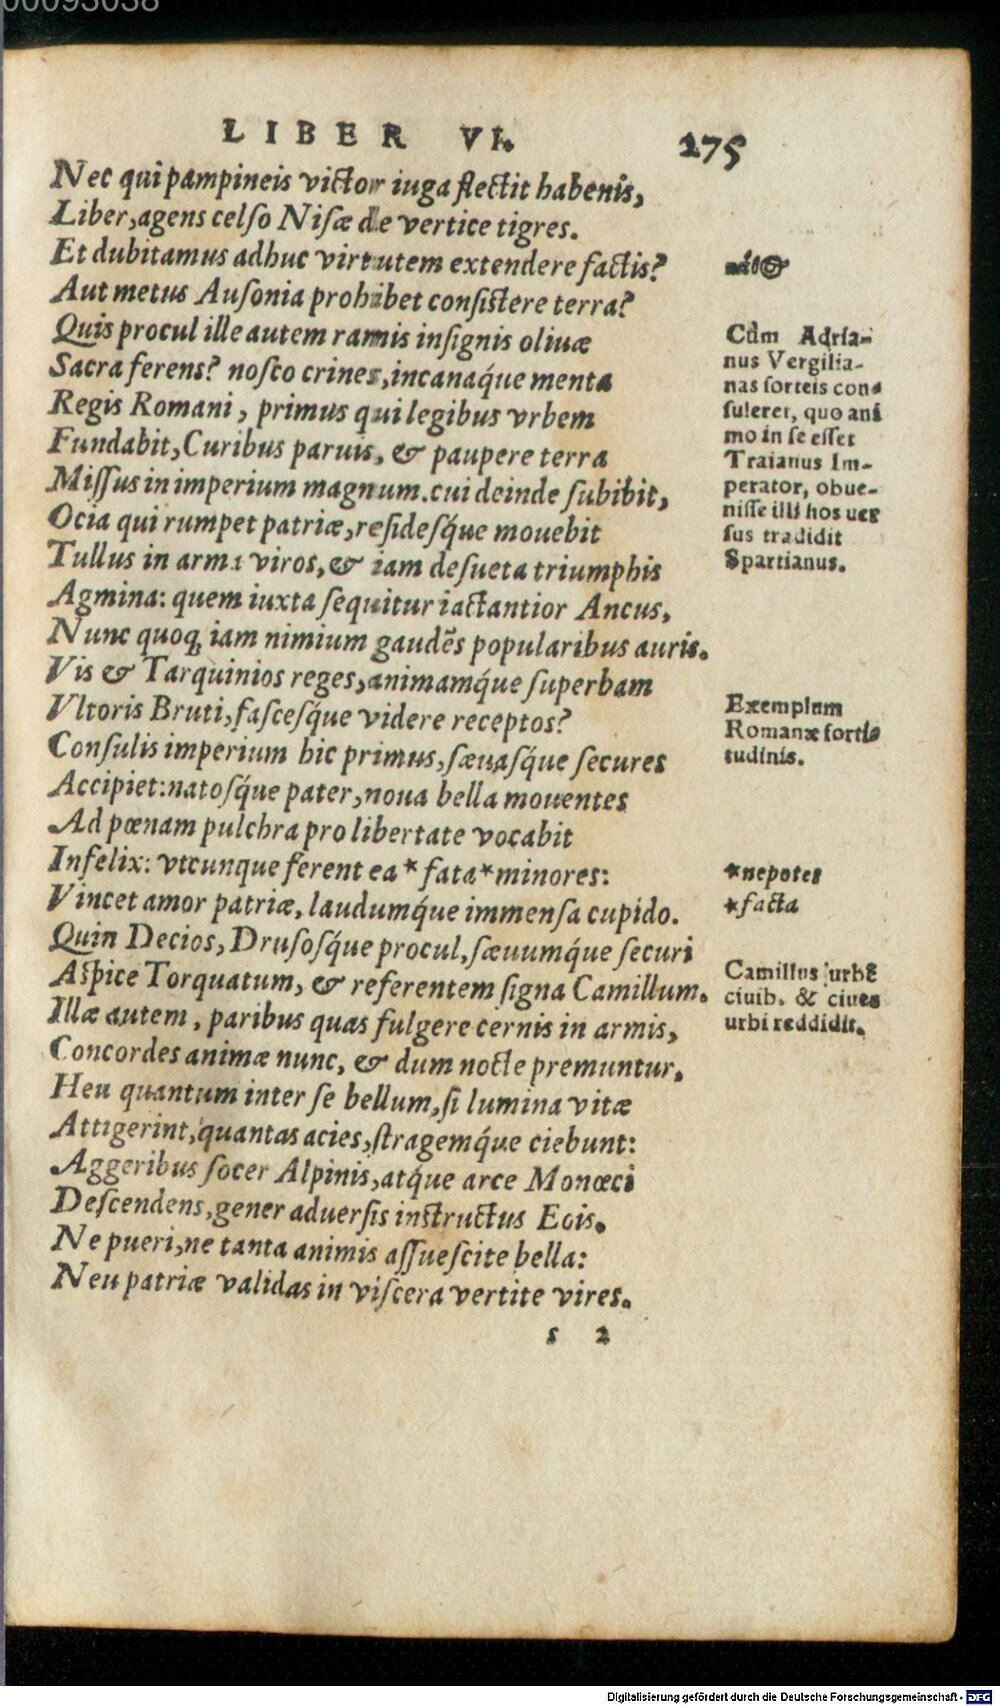 00093038
LIBER VI. 275
Nec qui pampineis victor iuga flectit habenis,
Liber, agens celſo Niſæ de vertice tigres.
Et dubitamus adhuc virtutem extendere factis?
Aut metus Auſonia prohibet conſiſtere terra?
Quis procul ille autem ramis inſignis oliuæ
Sacra ferens? noſco crines, incanaq́ue menta
Regis Romani, primus qui legibus vrbem
Fundabit, Curibus paruis, & paupere terra
Miſſus in imperium magnum. cui deinde ſubibit,
Ocia qui rumpet patriæ, reſideſq́ue mouebit
Tullus in arma viros, & iam deſueta triumphis
Agmina: quem iuxta ſequitur iactantior Ancus,
Nunc quoq; iam nimium gaudẽs popularibus auris.
Vis & Tarquinios reges, animamq́ue ſuperbam
Vltoris Bruti, faſceſq́ue videre receptos?
Conſulis imperium hic primus, ſæuaſq́ue ſecures
Accipiet: natoſq́ue pater, noua bella mouentes
Ad pœnam pulchra pro libertate vocabit
Infelix: vtcunque ferent ea * fata * minores:
Vincet amor patriæ, laudumq́ue immenſa cupido.
Quin Decios, Druſoſq́ue procul, ſæuumq́ue ſecuri
Aſpice Torquatum, & referentem ſigna Camillum.
Illæ autem, paribus quas fulgere cernis in armis,
Concordes animæ nunc, & dum nocte premuntur.
Heu quantum inter ſe bellum, ſi lumina vitæ
Attigerint, quantas acies, ſtragemq́ue ciebunt:
Aggeribus ſocer Alpinis, atq́ue arce Monœci
Deſcendens, gener aduerſis inſtructus Eois.
Ne pueri, ne tanta animis aſſueſcite bella:
Neu patriæ validas in viſcera vertite vires.
s 2
Cùm Adria-
nus Vergilia-
nas ſorteis con-
ſuleret, quo ani
mo in ſe eſſet
Traianus Im-
perator, obue-
niſſe illi hos uer
ſus tradidit
Spartianus.
Exemplum
Romanæ forti-
tudinis.
*nepotes
*facta
Camillus urbẽ
ciuib. & ciues
urbi reddidit.
Digitalisierung gefördert durch die Deutsche Forschungsgemeinschaft - DFG